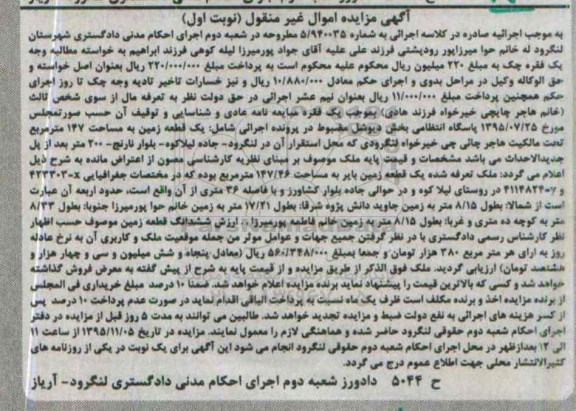 آگهی مزایده اموال غیر منقول (نوبت اول)
به موجب اجرائیه صادره در کلاسه اجرائی به شماره ۵/۹۴۰۰۳۵ مطروحه در شعبه دوم اجرای احکام مدنی دادگستری شهرستان
لنگرود له خانم حوا میرزاپور رودپشتی فرزند علی علیه آقای جواد پورمیرزا لیله کوهی فرزند ابراهیم به خواسته مطالبه وجه
یک فقره چک به مبلغ ۲۲۰ میلیون ریال محکوم علیه محکوم است به پرداخت مبلغ ۲۲۰/۰۰۰/۰۰۰ ریال بعنوان اصل خواسته و
حق الوکاله وکیل در مراحل بدوی و اجرای حکم معادل ۱۰/۸۸۰/۰۰۰ ریال و نیز خسارات تاخیر تادیه وجه چک تا روز اجرای
حکم همچنین پرداخت مبلغ ۱۱/۰۰۰/۰۰۰ ریال بعنوان نیم عشر اجرائی در حق دولت نظر به تعرفه مال از سوی شخص ثالث
(خانم هاجر چایچی خیرخواه فرزند هادی) بموجب یک فقره مبایعه نامه عادی و شناسایی و توقیف آن حسب صورتمجلس
مورخ ۱۳۹۵/۰۷/۲۵ پاسگاه انتظامی بخش دیوشل مضبوط در پرونده اجرائی شامل: یک قطعه زمین به مساحت ۱۴۷ مترمربع
تحت مالکیت هاجر چائی چی خیرخواه لنگرودی که محل استقرار آن در لنگرود- جاده لیلاکوه- بلوار نارنج- ۲۰۰ متر بعد از پل
جدیدالاحداث می باشد مشخصات و قیمت پایه ملک موصوف بر مبنای نظریه کارشناسی مصون از اعتراض مانده به شرح ذیل
اعلام می گردد: ملک تعرفه شده یک قطعه زمین بایر به مساحت ۱۴۷/۴۶ مترمربع بوده که در مختصات جغرافیایی ۴۲۳۳۰۳-x
و ۴۱۱۴۸۲۴-۷ در روستای لیلا کوه و در حوالی جاده بلوار کشاورز و با فاصله ۳۶ متری از آن واقع است، حدود اربعه آن عبارت
است از شمالا: بطول ۸/۱۵ متر به زمین جاوید دانش پژوه شرقا: بطول ۱۷/۲۱ متر به زمین خانم حوا پورمیرزا جنوبا: بطول ۸/۳۳
متر به کوچه ده متری و غربا: بطول ۸/۱۵ متر به زمین خانم فاطمه پورمیرزا. ارزش ششدانگ قطعه زمین موصوف حسب اظهار
نظر کارشناس رسمی دادگستری با در نظر گرفتن جمیع جهات و عوامل موثر من جمله موقعیت ملک و کاربری آن به نرخ عادله
روز به ازای هر متر مربع ۳۸۰ هزار تومان و جمعا بمبلغ ۵۶۰/۳۴۸/۰۰۰ ریال (معادل پنجاه و شش میلیون و سی و چهار هزار و
هشتصد تومان) ارزیابی گردید. ملک فوق الذکر از طریق مزایده و از قیمت پایه به شرح از پیش گفته به معرض فروش گذاشته
خواهد شد و کسی که بالاترین قیمت را پیشنهاد نماید برنده مزایده اعلام خواهد شد. ضمنا ۱۰ درصد مبلغ خریداری فی المجلس
از برنده مزایده اخذ و برنده مکلف است ظرف یک ماه نسبت به پرداخت الباقی اقدام نماید در صورت عدم پرداخت ۱۰ درصد پس
از کسر هزینه های اجرائی به نفع دولت ضبط و مزایده تجدید خواهد شد. طالبین می توانند به مدت ۵ روز قبل از مزایده در دفتر
اجرای احکام شعبه دوم حقوقی لنگرود حاضر شده و هماهنگی لازم را معمول نمایند. مزایده در تاریخ ۱۳۹۵/۱۱/۰۵ از ساعت ۱۱
الی ۱۲ بعدازظهر در محل اجرای احکام شعبه دوم حقوقی لنگرود انجام می شود این آگهی برای یک نوبت در یکی از روزنامه های
کثیرالانتشار محلی جهت اطلاع عموم درج می گردد.
ح ۵۰۴۴ دادورز شعبه دوم اجرای احکام مدنی دادگستری لنگرود- آریاز